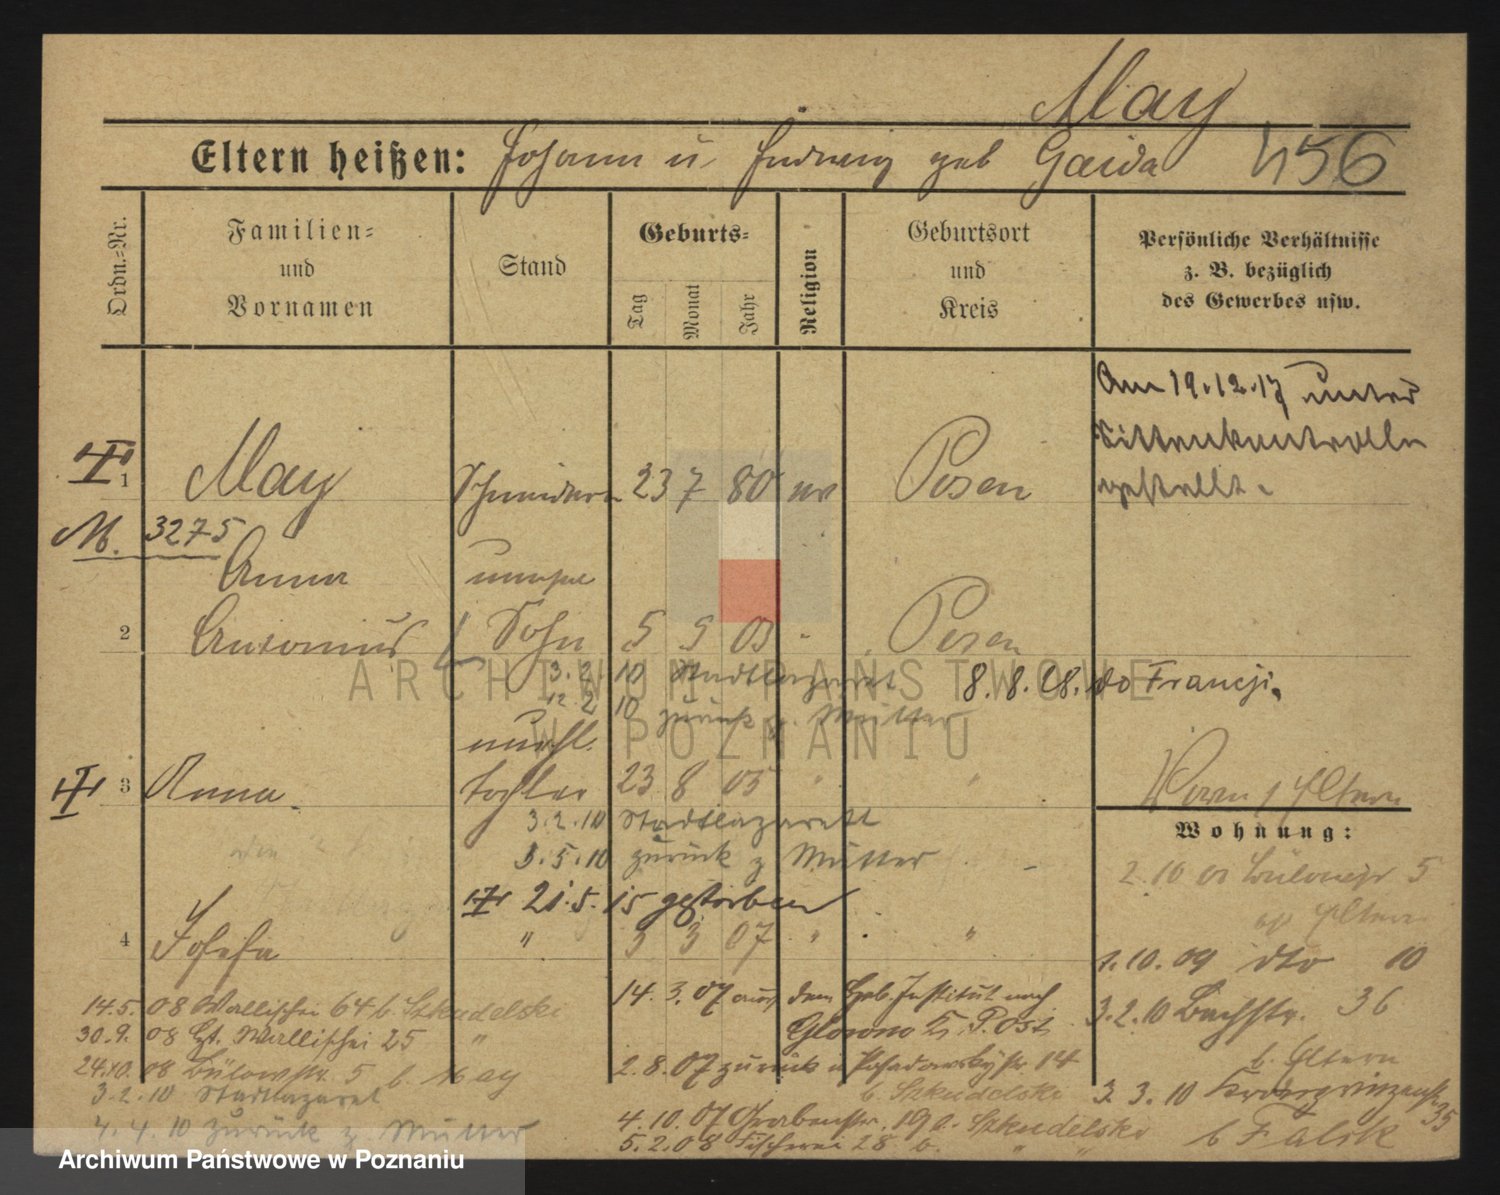 May
Eltern heißen: Johann u. Hedwig geb Gaida 456
Ordn.-Nr.
Familien- und Vornamen
Stand
Geburts-
Tag Monat Jahr
Religion
Geburtsort und Kreis
Persönliche Verhältnisse z. B. bezüglich des Gewerbes usw.
Am 19.12.17 unter
Sittenkontrolle
gestellt.
1 May Schneiderin 23 7 80 Posen
M. 3275
Anna
2 Antonius Sohn 5 9 03 " Posen
3.2. 10 Stadtlazarett 8.8.18. do Francji.
12.2 10 zurück z. Mutter
unehl.
3 Anna Tochter 23 8 05 " "
Wohnung:
3.2.10 Stadtlazarett
3.5.10 zurück z Mutter
2.10 Bülowstr 5
21.5.15 gestorben
b Eltern
4 Josefa " 3 3 07 " "
1.10.09 dto 10
14.3.07 aus dem Heb. Institut nach
Glowno Kr. P. Ost
3.2.10 Bachstr. 36
b. Eltern
14.5. 08 Wallischei 64 b. Szkudelski
30.9. 08 Wallischei 25 "
24.10. 08 Bülowstr. 5 b. May
3.2.10 Stadtlazaret
4.4.10 zurück z. Mutter
2.8.07 zurück n Posadowskystr. 14
b. Szkudelski
4.10.07 Grabenstr. 19a. Szkudelski
5.2.08 Fischerei 28 b. " "
3.3.10 35
b Falsk
ARCHIWUM PAŃSTWOWE
W POZNANIU
Archiwum Państwowe w Poznaniu